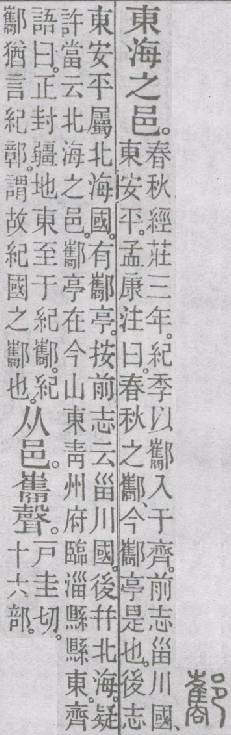 酅
東海之邑。
春秋經莊三年。紀季以酅入于齊。前志甾川國、
東安平。孟康注曰。春秋之酅、今酅亭是也。後志
東安平屬北海國。有酅亭。按前志云甾川國。後幷北海。疑
許當云北海之邑。酅亭在今山東靑州府臨淄縣縣東。齊
語曰。正封疆地東至于紀酅。紀
酅猶言紀鄣。謂故紀國之酅也。
从邑。巂聲。
戶圭切。
十六部。